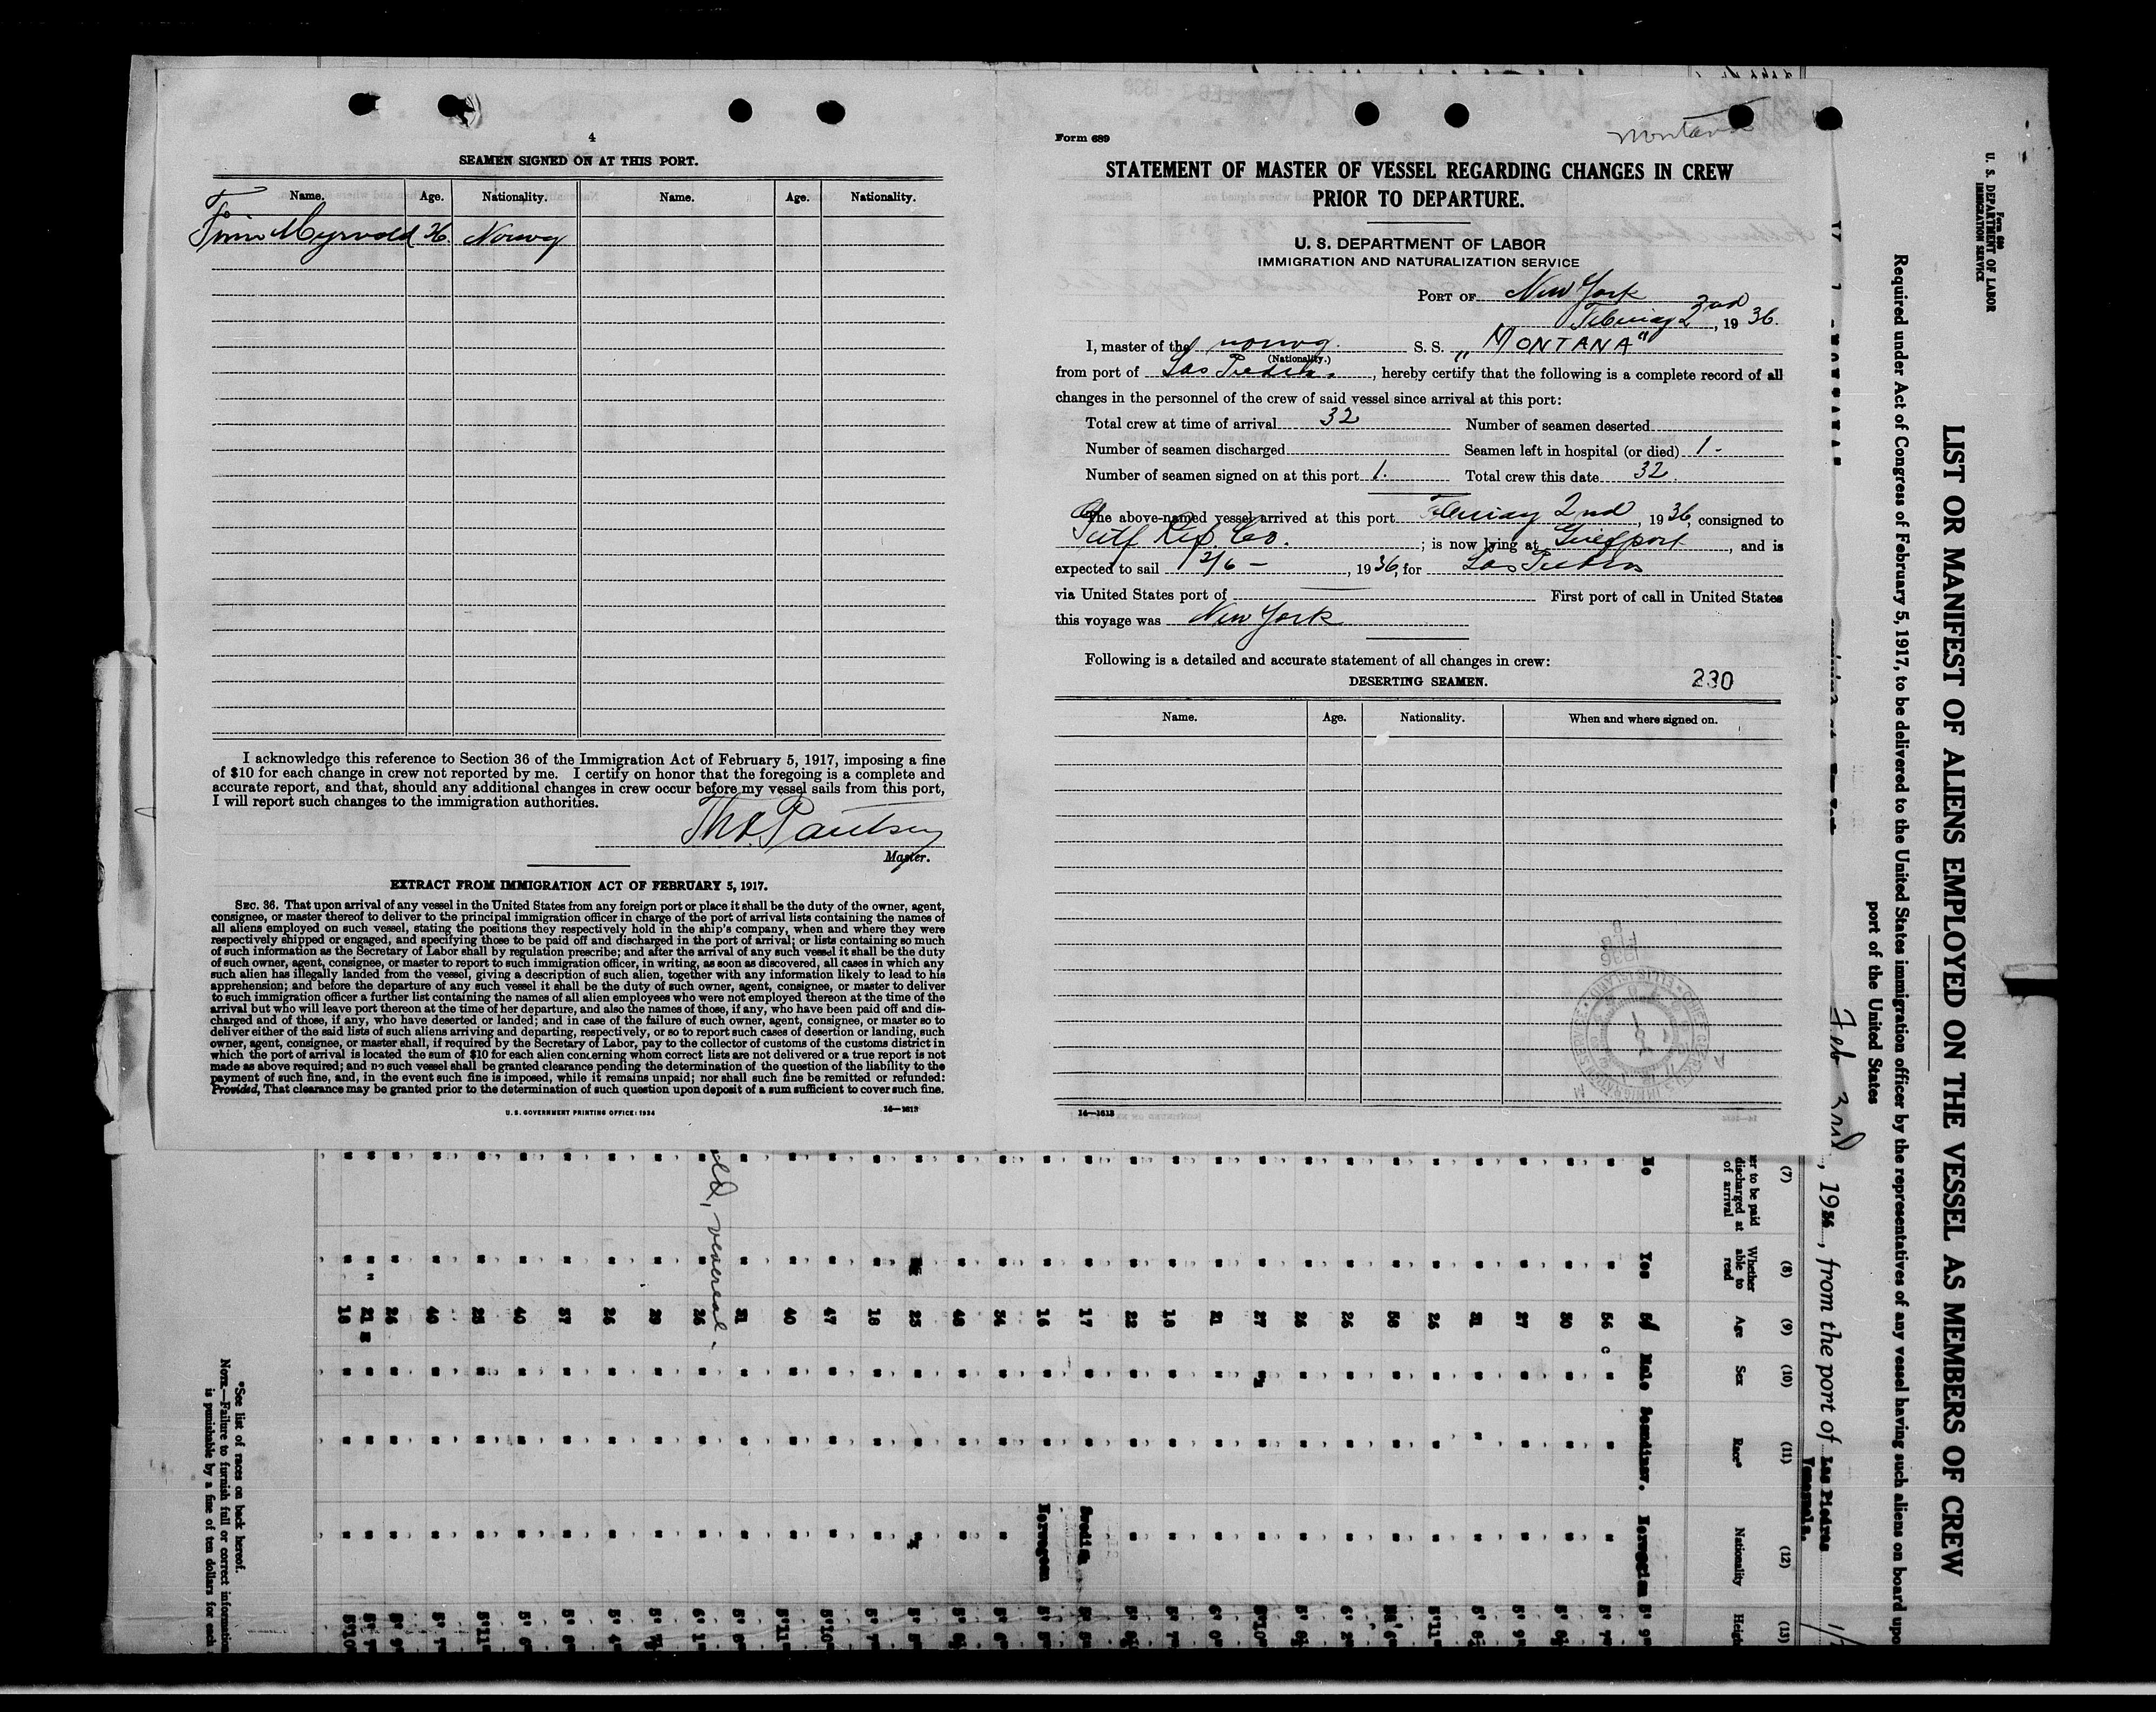 4
SEAMEN SIGNED ON AT THIS PORT.
Name. Age. Nationality. Name. Age. Nationality.
Myrvold 36. Norwg
I acknowledge this reference to Section 36 of the Immigration Act of February 5, 1917, imposing a fine
of $10 for each change in crew not reported by me. I certify on honor that the foregoing is a complete and
accurate report, and that, should any additional changes in crew occur before my vessel sails from this port,
I will report such changes to the immigration authorities.
Th. Paulsen
Master.
EXTRACT FROM IMMIGRATION ACT OF FEBRUARY 5, 1917.
SEC. 36. That upon arrival of any vessel in the United States from any foreign port or place it shall be the duty of the owner, agent,
consignee, or master thereof to deliver to the principal immigration officer in charge of the port of arrival lists containing the names of
all aliens employed on such vessel, stating the positions they respectively hold in the ship's company, when and where they were
respectively shipped or engaged, and specifying those to be paid off and discharged in the port of arrival; or lists containing so much
of such information as the Secretary of Labor shall by regulation prescribe; and after the arrival of any such vessel it shall be the duty
of such owner, agent, consignee, or master to report to such immigration officer, in writing, as soon as discovered, all cases in which any
such alien has illegally landed from the vessel, giving a description of such alien, together with any information likely to lead to his
apprehension; and before the departure of any such vessel it shall be the duty of such owner, agent, consignee, or master to deliver
to such immigration officer a further list containing the names of all alien employees who were not employed thereon at the time of the
arrival but who will leave port thereon at the time of her departure, and also the names of those, if any, who have been paid off and dis-
charged and of those, if any, who have deserted or landed; and in case of the failure of such owner, agent, consignee, or master so to
deliver either of the said lists of such aliens arriving and departing, respectively, or so to report such cases of desertion or landing, such
owner, agent, consignee, or master shall, if required by the Secretary of Labor, pay to the collector of customs of the customs district in
which the port of arrival is located the sum of $10 for each alien concerning whom correct lists are not delivered or a true report is not
made as above required; and no such vessel shall be granted clearance pending the determination of the question of the liability to the
payment of such fine, and, in the event such fine is imposed, while it remains unpaid; nor shall such fine be remitted or refunded:
Provided, That clearance may be granted prior to the determination of such question upon deposit of a sum sufficient to cover such fine.
U. S. GOVERNMENT PRINTING OFFICE: 1934 14—1613
Form 689
Montana
STATEMENT OF MASTER OF VESSEL REGARDING CHANGES IN CREW
PRIOR TO DEPARTURE.
U. S. DEPARTMENT OF LABOR
IMMIGRATION AND NATURALIZATION SERVICE
PORT OF New York
February 2nd, 1936.
I, master of the norwg. S. S. „MONTANA"
(Nationality.)
from port of Las Piedras, hereby certify that the following is a complete record of all
changes in the personnel of the crew of said vessel since arrival at this port:
Total crew at time of arrival 32 Number of seamen deserted
Number of seamen discharged Seamen left in hospital (or died) 1-
Number of seamen signed on at this port 1. Total crew this date 32.
The above-named vessel arrived at this port February 2nd, 1936, consigned to
Gulf Ref. Co. ; is now lying at Gulfport, and is
expected to sail 2/6 -, 1936, for Las Piedras
via United States port of First port of call in United States
this voyage was New York
Following is a detailed and accurate statement of all changes in crew:
DESERTING SEAMEN. 230
Name. Age. Nationality. When and where signed on.
14—1613
Form 689
U. S. DEPARTMENT OF LABOR
IMMIGRATION SERVICE
LIST OR MANIFEST OF ALIENS EMPLOYED ON THE VESSEL AS MEMBERS OF CREW
Required under Act of Congress of February 5, 1917, to be delivered to the United States immigration officer by the representatives of any vessel having such aliens on board upo
port of the United States
Feb 3rd, 1936, from the port of Las Piedras
Venezuela.
(7) (8) (9) (10) (11) (12) (13)
er to be paid
discharged at
of arrival
Whether
able to
read
Age Sex Race* Nationality Heigh
No Yes Male Scandinav. Norwegian 5' 9"
56 " 5' 7"
30
27 5' 9"
31
26 5'11"
58
26 6' 2"
26
27 5'10"
21 6' 0"
18 5' 7"
22
17 Swedish
16 Norwegean
34 5' 6"
48
25
18 5' 7"
47 5'10"
40 5'11"
31
26 6' 1"
29
26
37
40
25 5'11"
40 5' 7"
26 5' 9"
21
18 5'10"
ld, venereal.
*See list of races on back hereof.
NOTE.—Failure to furnish full or correct information
is punishable by a fine of ten dollars for each